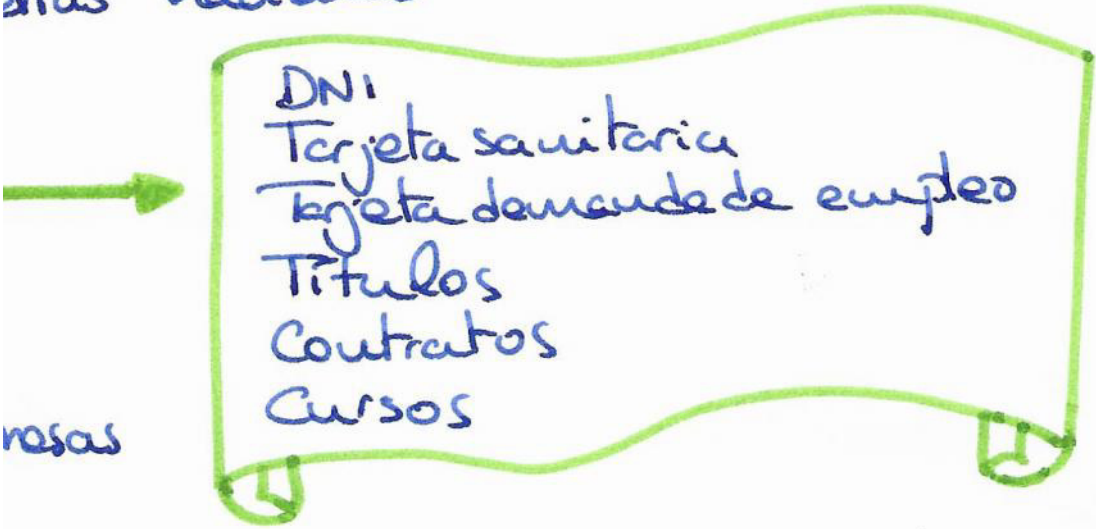 DNI
Tarjeta sanitaria
Tarjeta demanda de empleo
Títulos
Contratos
Cursos